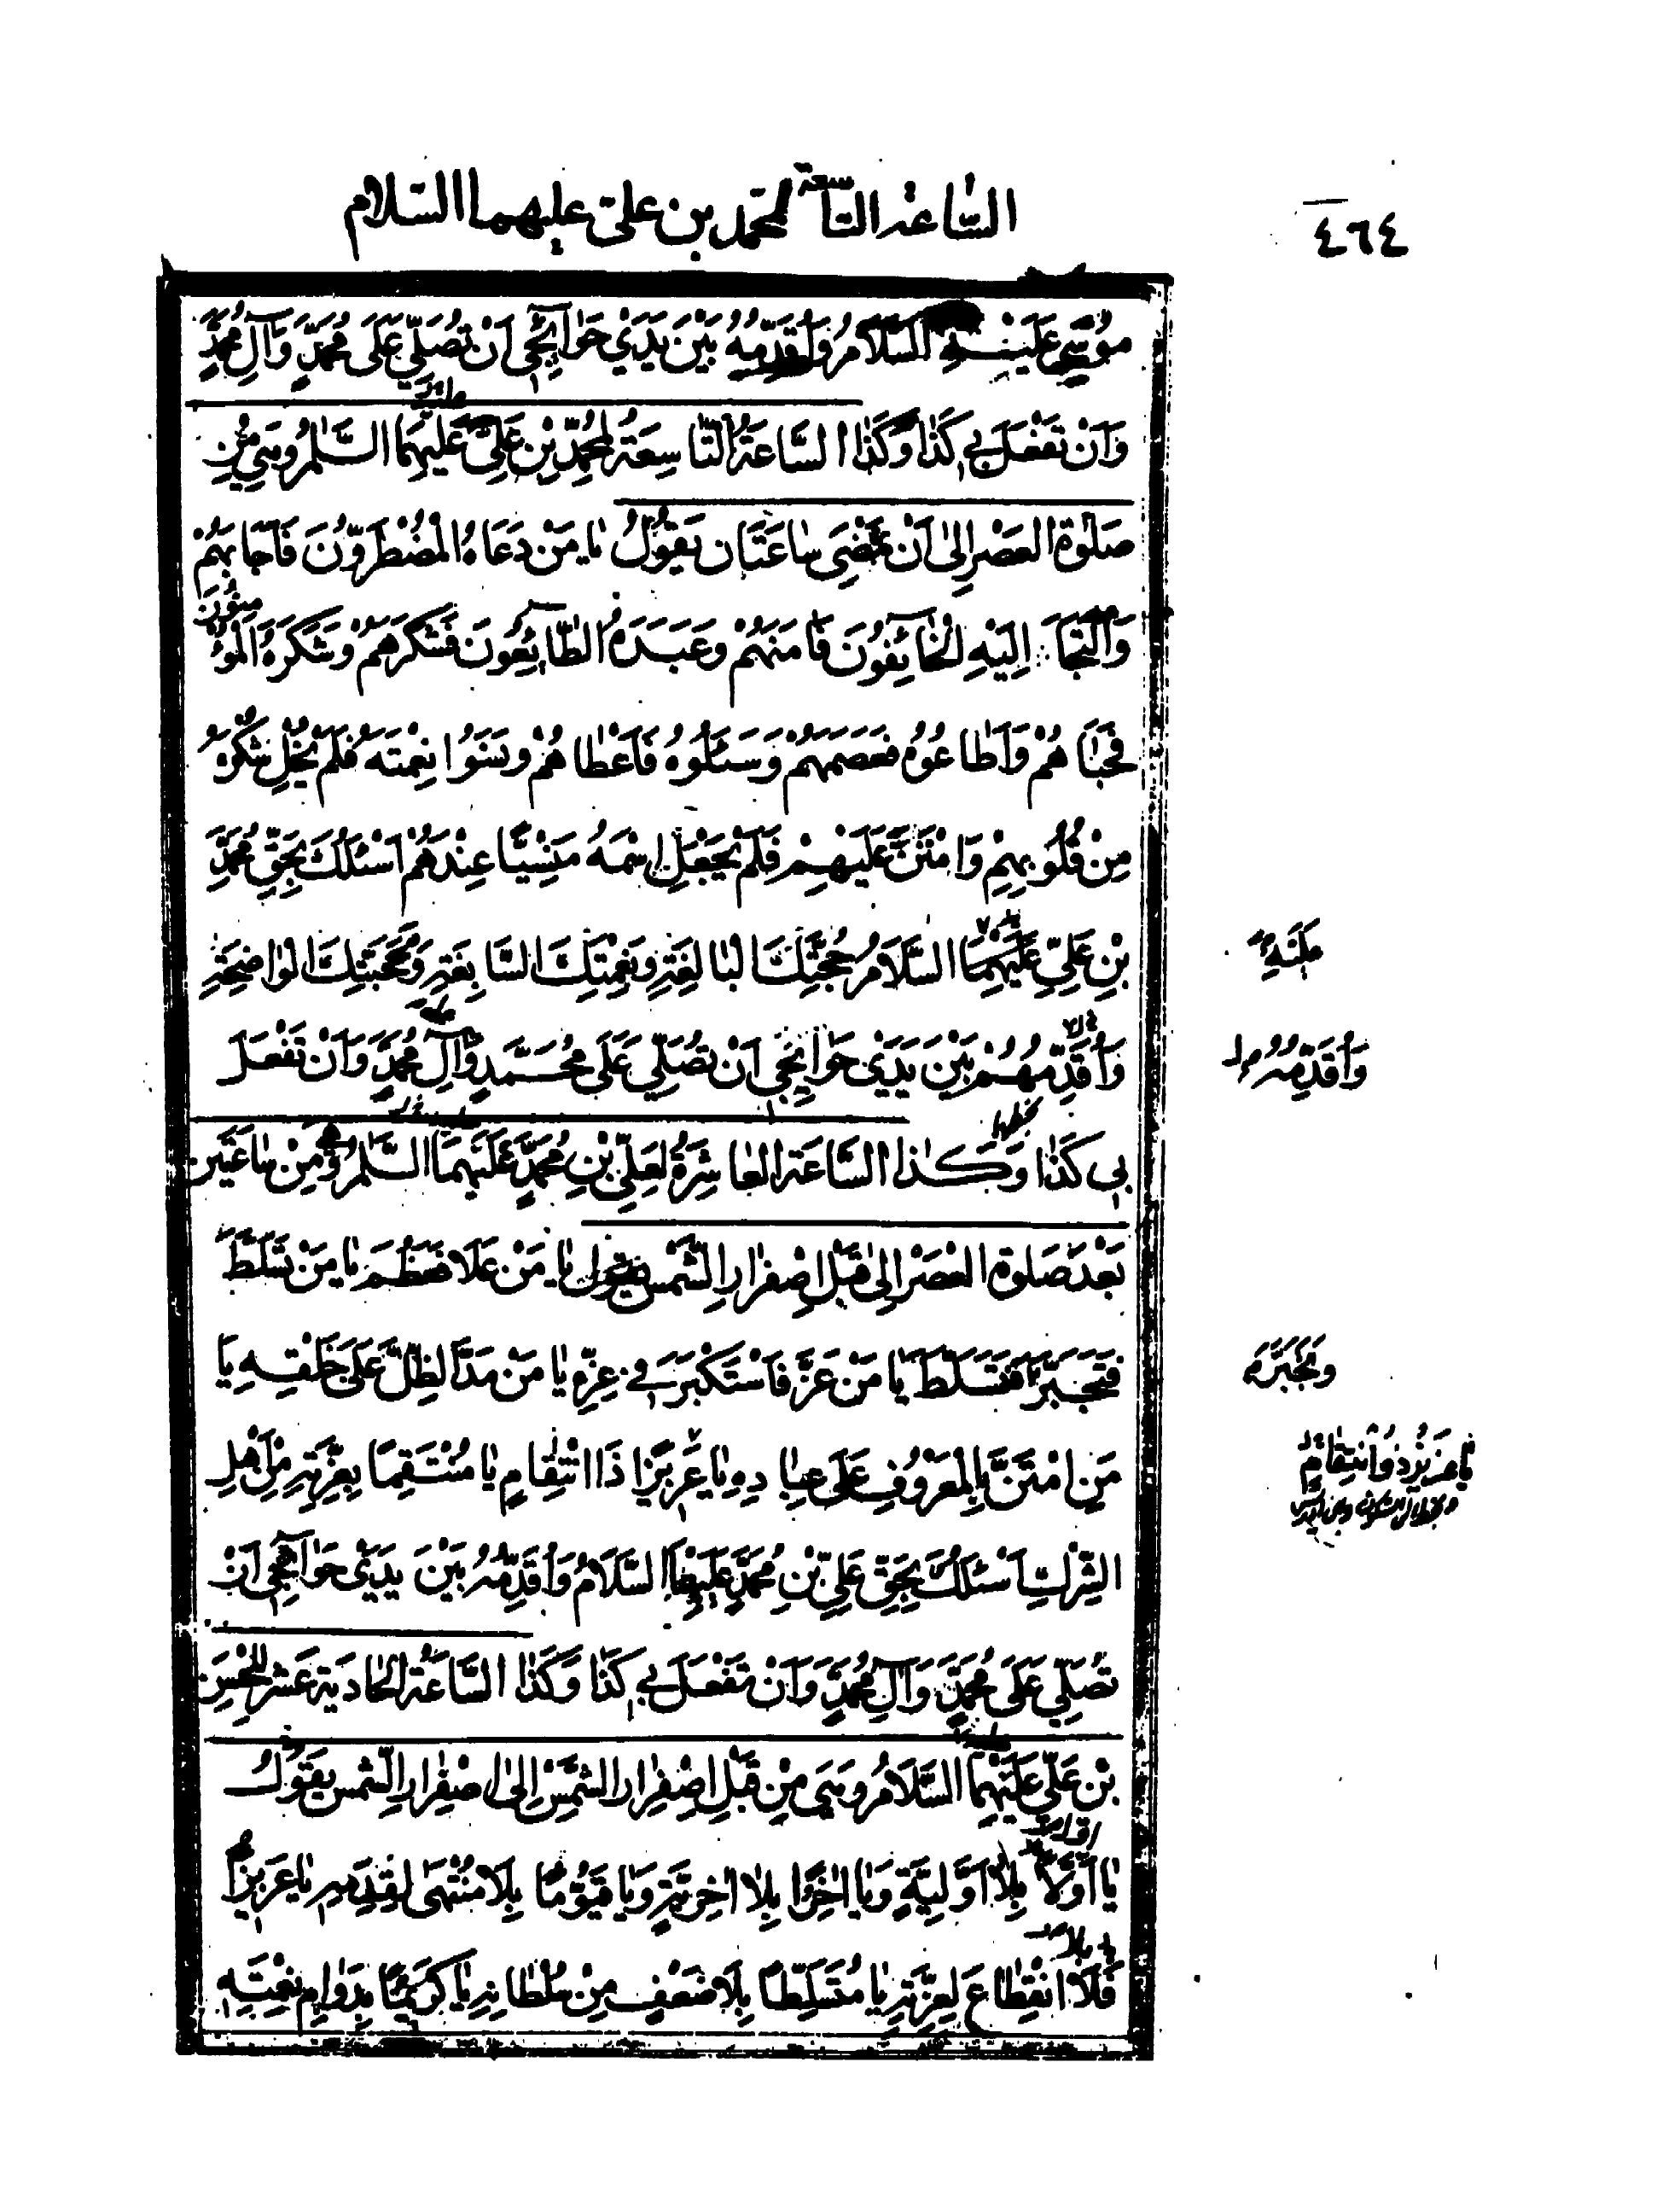 ٤٦٤
الساعة التاسعة لمحمد بن علي عليهما السلام
مُوسَى عَلَيْهِ السَّلَامُ وَأُقَدِّمُهُ بَيْنَ يَدَيْ حَوَآئِجِي أَنْ تُصَلِّيَ عَلَى مُحَمَّدٍ وَآلِ مُحَمَّدٍ
وَأَنْ تَفْعَلَ بِي كَذَا وَكَذَا السَّاعَةُ التَّاسِعَةُ لِمُحَمَّدِ بْنِ عَلِيٍّ عَلَيْهِمَا السَّلٰمُ وَهِيَ مِنْ
صَلٰوةِ الْعَصْرِ إِلَى أَنْ تَمْضِيَ سَاعَتَانِ تَقُولُ يَا مَنْ دَعَاهُ الْمُضْطَرُّونَ فَأَجَابَهُمْ
وَالْتَجَأَ إِلَيْهِ الْخَآئِفُونَ فَآمَنَهُمْ وَعَبَدَهُ الطَّآئِعُونَ فَشَكَرَهُمْ وَشَكَرَهُ الْمُؤْمِنُونَ
فَحَبَاهُمْ وَأَطَاعُوهُ فَعَصَمَهُمْ وَسَئَلُوهُ فَأَعْطَاهُمْ وَنَسَوْا نِعْمَتَهُ فَلَمْ يُخْلِ شُكْرَهُ
مِنْ قُلُوبِهِمْ وَامْتَنَّ عَلَيْهِمْ فَلَمْ يَجْعَلِ اسْمَهُ مَنْسِيًّا عِنْدَهُمْ أَسْئَلُكَ بِحَقِّ مُحَمَّدِ
بْنِ عَلِيٍّ عَلَيْهِمَا السَّلَامُ حُجَّتِكَ الْبَالِغَةِ وَنِعْمَتِكَ السَّابِغَةِ وَمَحَجَّتِكَ الْوَاضِحَةِ
وَأُقَدِّمُهُمْ بَيْنَ يَدَيْ حَوَائِجِي أَنْ تُصَلِّيَ عَلَى مُحَمَّدٍ وَآلِ مُحَمَّدٍ وَأَنْ تَفْعَلَ
وَأُقَدِّمُهُ
بِي كَذَا وَكَذَا السَّاعَةُ الْعَاشِرَةُ لِعَلِيِّ بْنِ مُحَمَّدٍ عَلَيْهِمَا السَّلٰمُ وَهِيَ مِنْ سَاعَتَيْنِ
بَعْدَ صَلٰوةِ الْعَصْرِ إِلَى قَبْلِ اصْفِرَارِ الشَّمْسِ تَقُولُ يَا مَنْ عَلَا فَعَظُمَ يَا مَنْ تَسَلَّطَ
فَتَجَبَّرَ وَتَجَبَّرَ فَتَسَلَّطَ يَا مَنْ عَزَّ فَاسْتَكْبَرَ فِي عِزِّهِ يَا مَنْ مَدَّ الظِّلَّ عَلَى خَلْقِهِ يَا
مَنِ امْتَنَّ بِالْمَعْرُوفِ عَلَى عِبَادِهِ يَا عَزِيزًا ذَا انْتِقَامٍ يَا مُنْتَقِمًا بِعِزَّتِهِ مِنْ أَهْلِ
يَا عَزِيزُ ذُو انْتِقَامٍ
الشِّرْكِ أَسْئَلُكَ بِحَقِّ عَلِيِّ بْنِ مُحَمَّدٍ عَلَيْهِمَا السَّلَامُ وَأُقَدِّمُهُ بَيْنَ يَدَيْ حَوَآئِجِي أَنْ
تُصَلِّيَ عَلَى مُحَمَّدٍ وَآلِ مُحَمَّدٍ وَأَنْ تَفْعَلَ بِي كَذَا وَكَذَا السَّاعَةُ الْحَادِيَةَ عَشَرَ لِلْحَسَنِ
بْنِ عَلِيٍّ عَلَيْهِمَا السَّلَامُ وَهِيَ مِنْ قَبْلِ اصْفِرَارِ الشَّمْسِ إِلَى اصْفِرَارِ الشَّمْسِ يَقُولُ
يَا أَوَّلًا بِلَا أَوَّلِيَّةٍ وَيَا آخِرًا بِلَا آخِرِيَّةٍ وَيَا قَيُّومًا بِلَا مُنْتَهَى لِقِدَمِهِ يَا عَزِيزًا
فَلَا انْقِطَاعَ لِعِزَّتِهِ يَا مُتَسَلِّطًا بِلَا ضَعْفٍ مِنْ سُلْطَانِهِ يَا كَرِيمًا بِدَوَامِ نِعْمَتِهِ